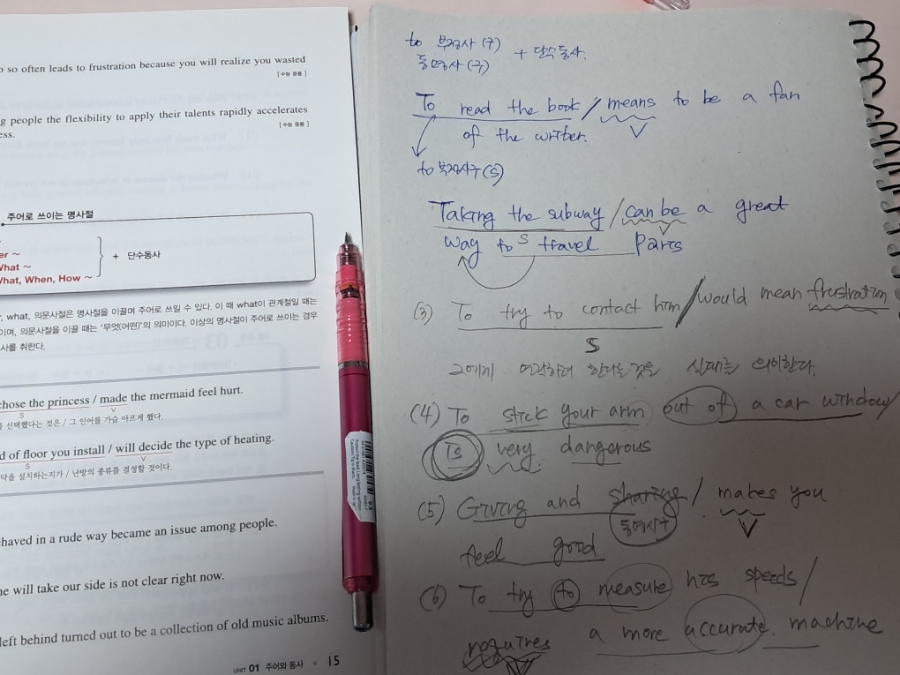 o so often leads to frustration because you will realize you wasted
[수능 응용]
g people the flexibility to apply their talents rapidly accelerates
ess.
[수능 응용]
주어로 쓰이는 명사절
er ~
What ~
What, When, How ~
+ 단수동사
r, what, 의문사절은 명사절을 이끌며 주어로 쓰일 수 있다. 이 때 what이 관계절일 때는
이며, 의문사절을 이끌 때는 '무엇(어떤)'의 의미이다. 이상의 명사절이 주어로 쓰이는 경우
사를 취한다.
chose the princess / made the mermaid feel hurt.
S V
를 선택했다는 것은 / 그 인어를 가슴 아프게 했다.
d of floor you install / will decide the type of heating.
S V
닥을 설치하는지가 / 난방의 종류를 결정할 것이다.
haved in a rude way became an issue among people.
he will take our side is not clear right now.
left behind turned out to be a collection of old music albums.
UNIT 01 주어와 동사 15
to 부정사 (구)
동명사 (구) + 단수동사.
To read the book / means to be a fan
V
of the writer.
to 부정사구 (S)
Taking the subway / can be a great
S V
way to travel Paris
(3) To try to contact him / would mean frustration
S
그에게 연락하려 한다는 것은 실패를 의미한다.
(4) To stick your arm out of a car window /
Is very dangerous
(5) Giving and sharing / makes you
V
feel good
(6) To try to measure his speeds /
requires a more accurate machine